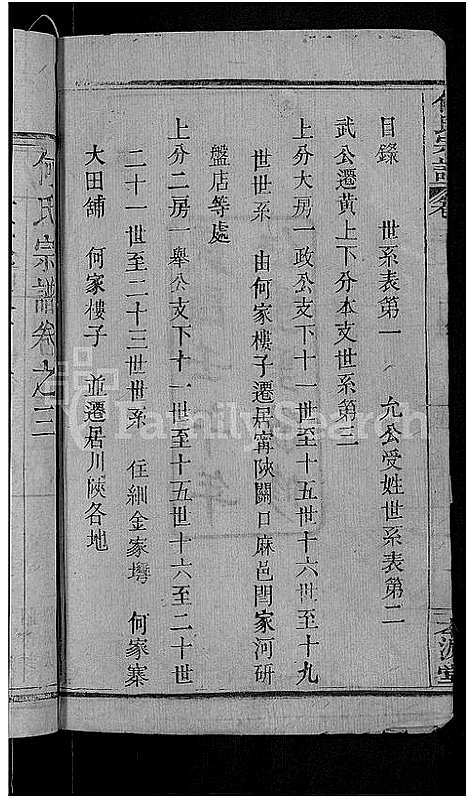 何氏宗譜 卷
目錄 世系表第一 允公受姓世系表第二
武公遷黃上下分本支世系第三
上分大房一政公支下十一世至十五世十六世至十九
世世系 由何家樓子遷居甯陝關口麻邑閆家河研
盤店等處
上分二房一舉公支下十一世至十五世十六至二十世
二十一世至二十三世世系 住細金家塆 何家寨
大田舖 何家樓子 並遷居川陝各地
何氏宗譜卷之三
FamilySearch